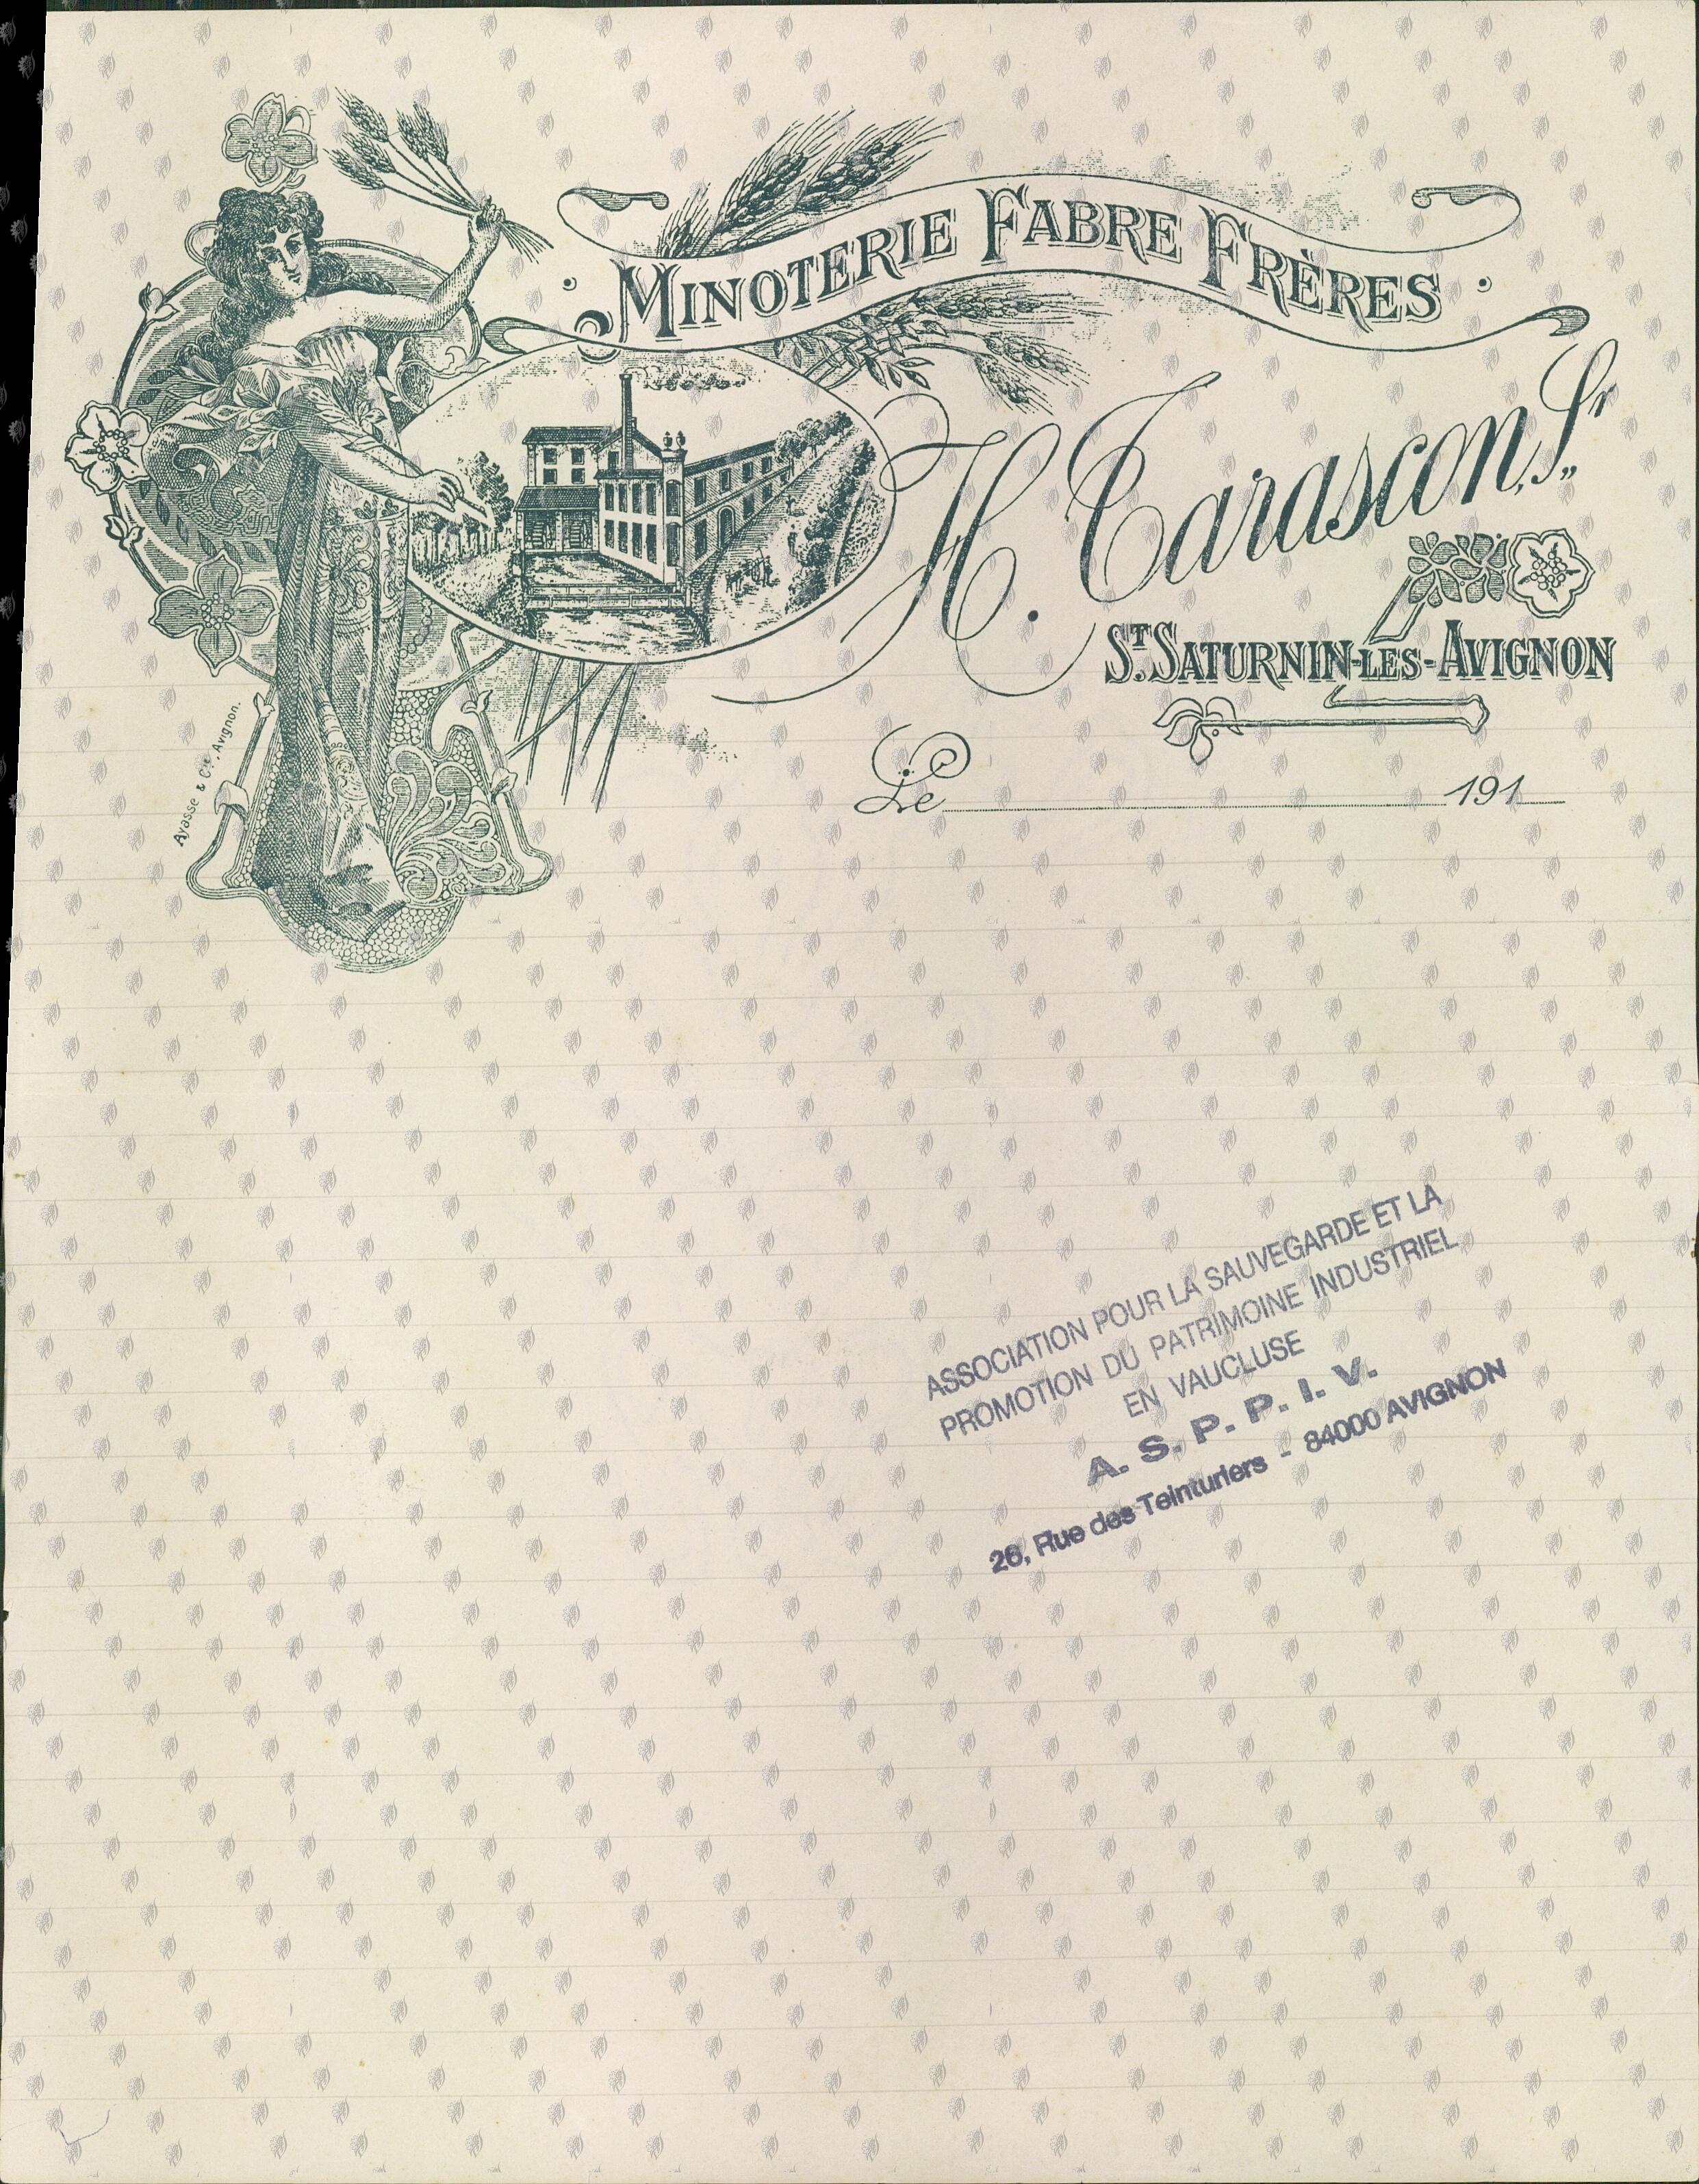 MINOTERIE FABRE FRÈRES
H. Tarascon, Sr
ST. SATURNIN-LES-AVIGNON
Le 191
Ayasse & Cie, Avignon.
ASSOCIATION POUR LA SAUVEGARDE ET LA
PROMOTION DU PATRIMOINE INDUSTRIEL
EN VAUCLUSE
A. S. P. P. I. V.
26, Rue des Teinturiers - 84000 AVIGNON